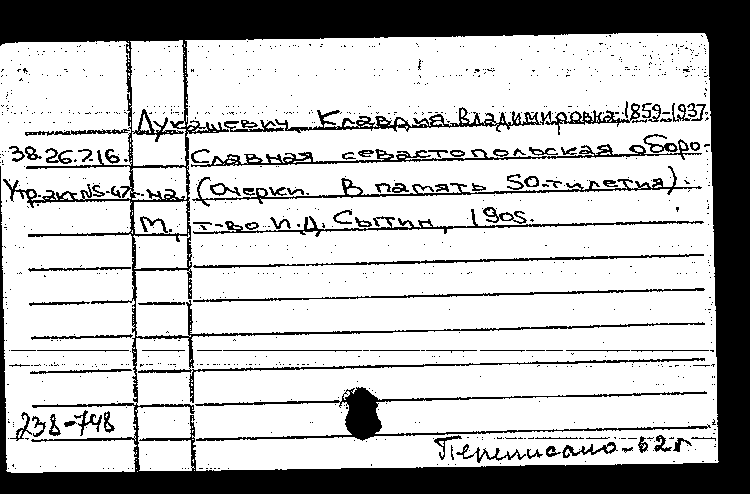 Лукашевич, Клавдия Владимировна, 1859-1937.
38.26.216. Славная севастопольская оборо-
Утр. акт №5-47г. на (Очерки. В память 50-тилетия).
М., т-во И.Д. Сытин, 1905.
238-748
Переписано-52г